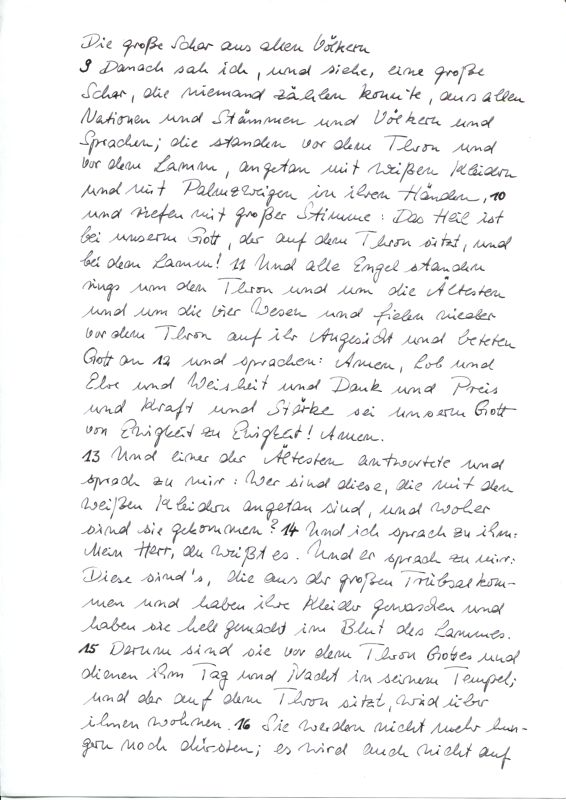 Die große Schar aus allen Völkern
9 Danach sah ich, und siehe, eine große
Schar, die niemand zählen konnte, aus allen
Nationen und Stämmen und Völkern und
Sprachen; die standen vor dem Thron und
vor dem Lamm, angetan mit weißen Kleidern
und mit Palmzweigen in ihren Händen, 10
und riefen mit großer Stimme: Das Heil ist
bei unserm Gott, der auf dem Thron sitzt, und
bei dem Lamm! 11 Und alle Engel standen
rings um den Thron und um die Ältesten
und um die vier Wesen und fielen nieder
vor dem Thron auf ihr Angesicht und beteten
Gott an 12 und sprachen: Amen, Lob und
Ehre und Weisheit und Dank und Preis
und Kraft und Stärke sei unserm Gott
von Ewigkeit zu Ewigkeit! Amen.
13 Und einer der Ältesten antwortete und
sprach zu mir: Wer sind diese, die mit den
weißen Kleidern angetan sind, und woher
sind sie gekommen? 14 Und ich sprach zu ihm:
Mein Herr, du weißt es. Und er sprach zu mir:
Diese sind's, die aus der großen Trübsal kom-
men und haben ihre Kleider gewaschen und
haben sie hell gemacht im Blut des Lammes.
15 Darum sind sie vor dem Thron Gottes und
dienen ihm Tag und Nacht in seinem Tempel;
und der auf dem Thron sitzt, wird über
ihnen wohnen. 16 Sie werden nicht mehr hun-
gern noch dürsten; es wird auch nicht auf